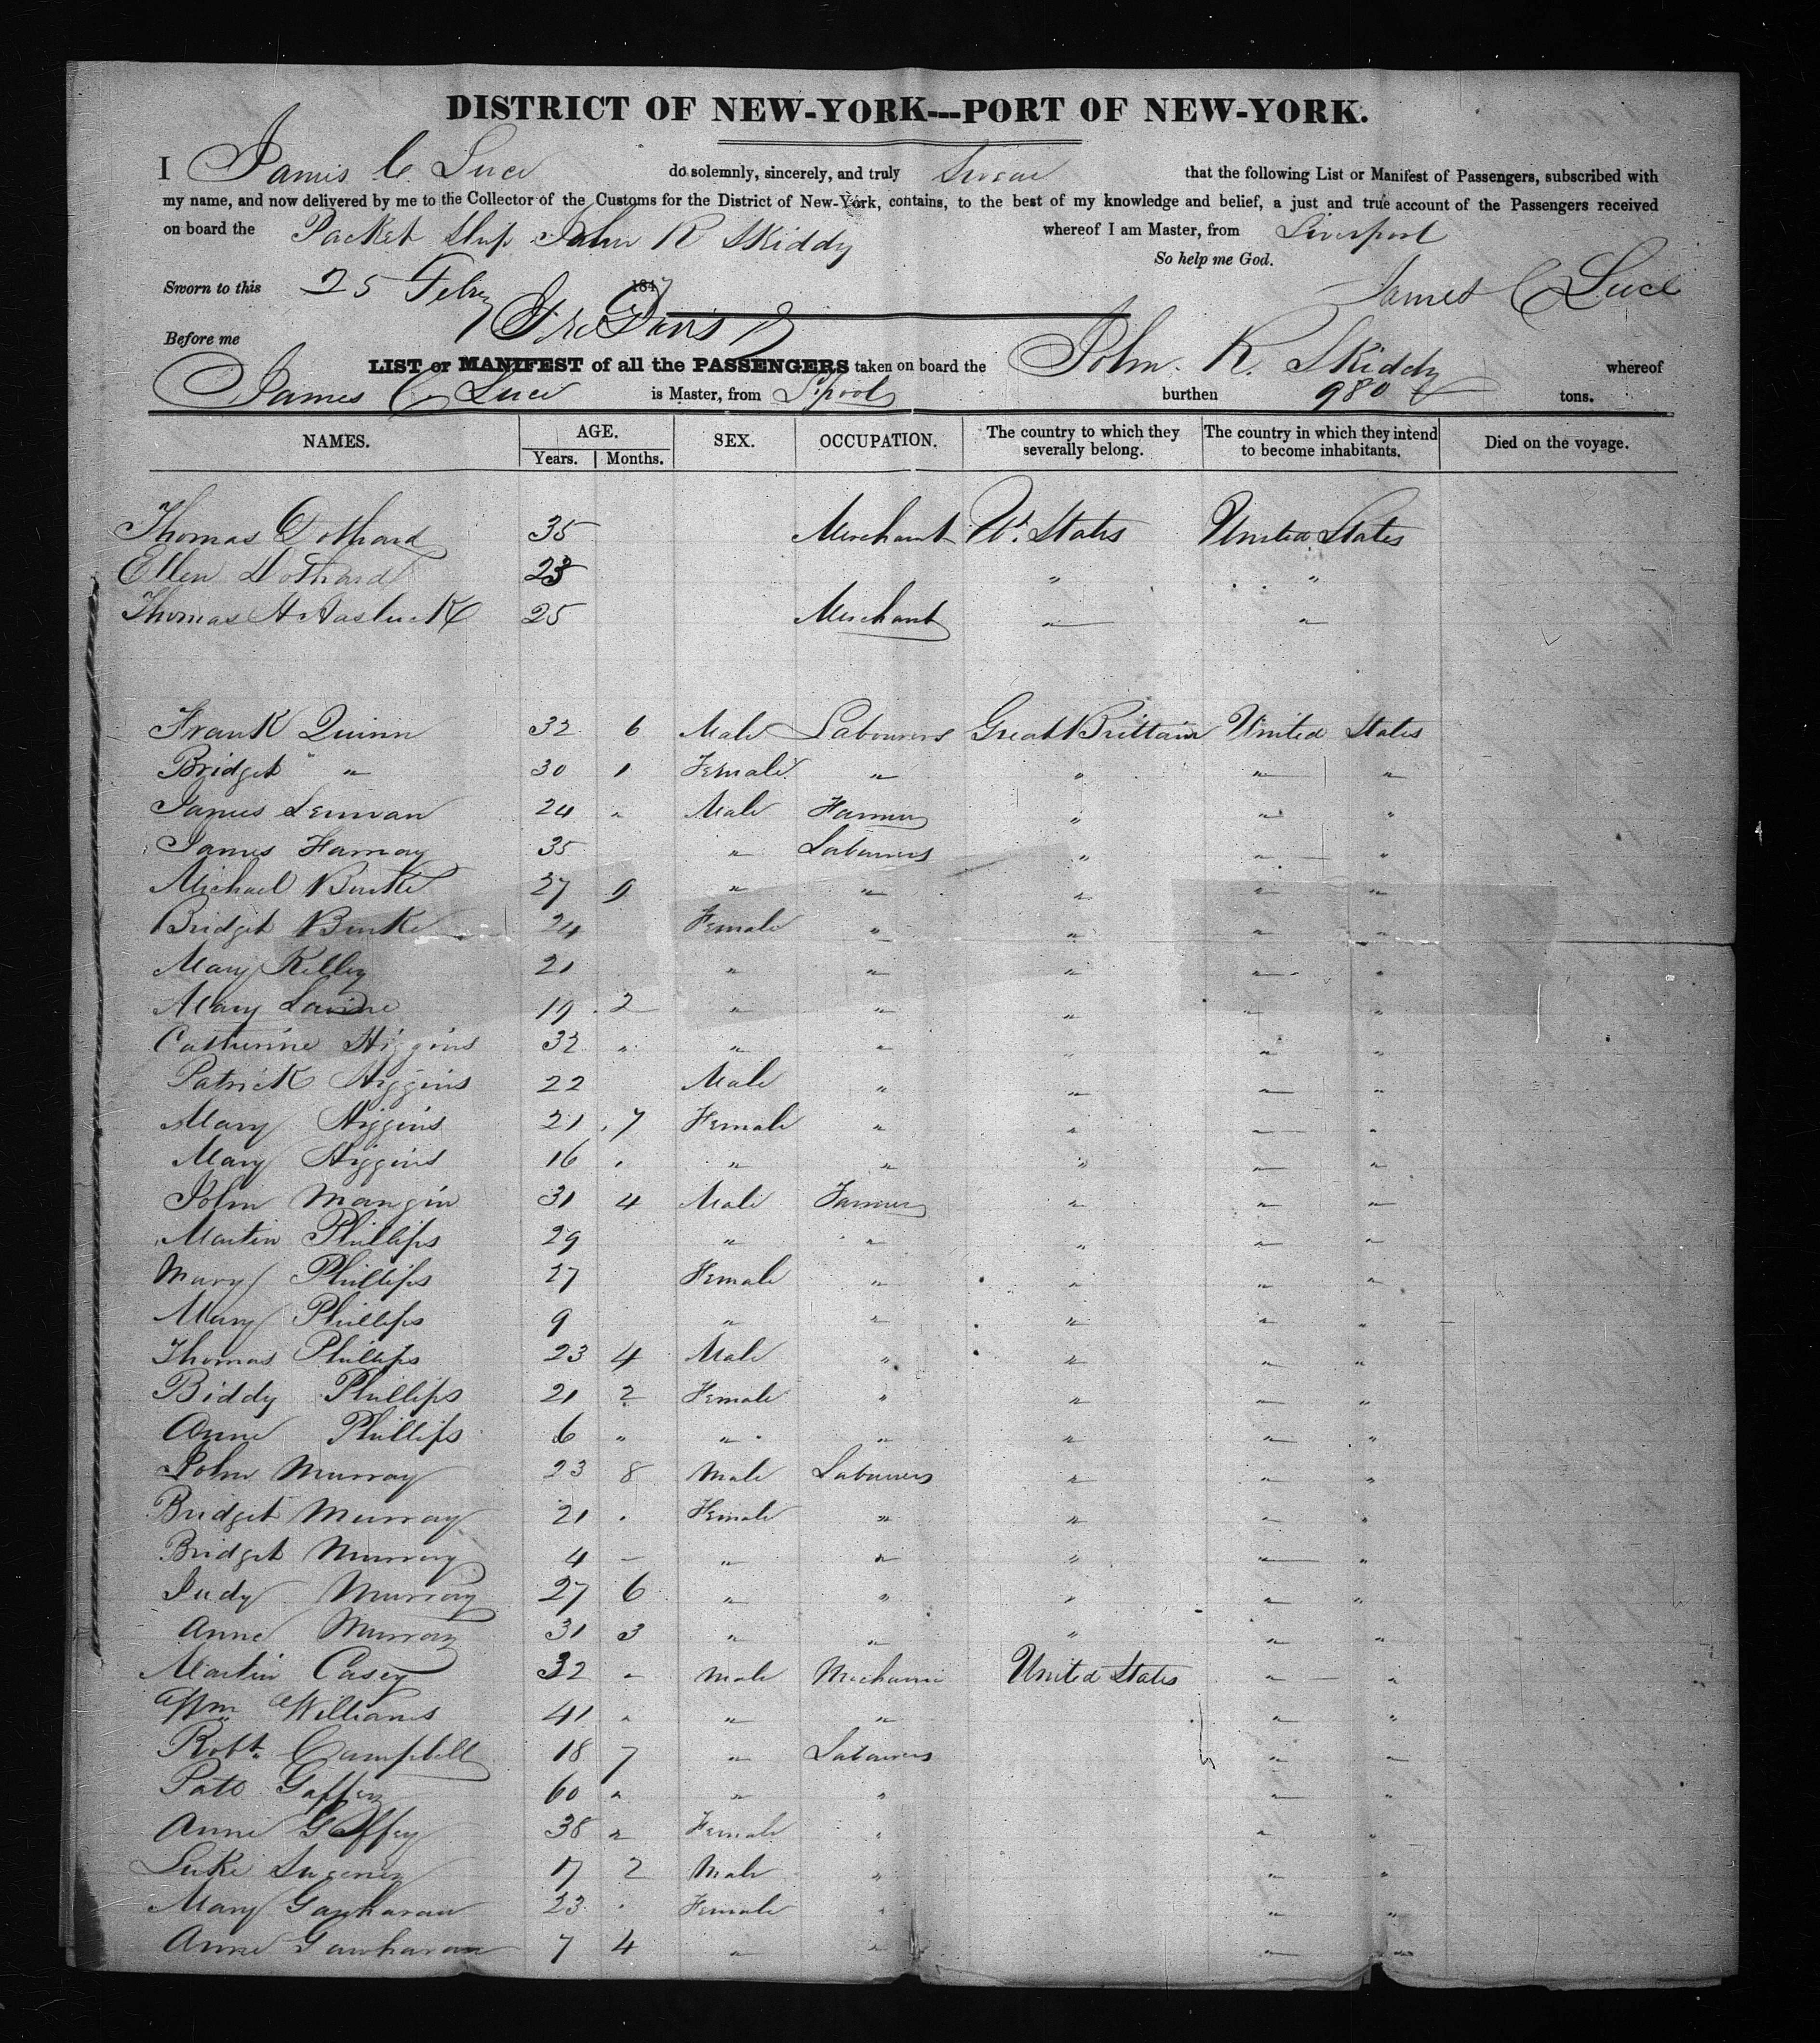 DISTRICT OF NEW-YORK---PORT OF NEW-YORK.
I James C. Luce do solemnly, sincerely, and truly Swear that the following List or Manifest of Passengers, subscribed with
my name, and now delivered by me to the Collector of the Customs for the District of New-York, contains, to the best of my knowledge and belief, a just and true account of the Passengers received
on board the Packet Ship John R Skiddy whereof I am Master, from Liverpool
So help me God.
Sworn to this 25 Feby 1847 James C Luce
Before me
LIST or MANIFEST of all the PASSENGERS taken on board the John. R. Skiddy whereof
James C. Luce is Master, from Lpool burthen 980 tons.
NAMES. AGE. SEX. OCCUPATION. The country to which they severally belong. The country in which they intend to become inhabitants. Died on the voyage.
Years. Months.
Thomas 35 Merchant U. States United States
Ellen 23 " "
Thomas H 25 Merchant " "
Frank Quinn 32 6 Male Labourers Great Brittain United States
Bridget " 30 1 Female " " " "
James Lennan 24 " Male Farmer " " "
James Farnay 35 " Labourers " " "
Michael Burke 27 9 " " " " "
Bridget Burke 24 Female " " " "
Mary Kelley 21 " " " " "
Mary 19 2 " " " " "
Catherine Higgins 32 " " " " " "
Patrick Higgins 22 Male " " " "
Mary Higgins 21 7 Female " " " "
Mary Higgins 16 " " " " " "
John Mangin 31 4 Male Farmer " " "
Martin Phillips 29 " " " " "
Mary Phillips 27 Female " " " "
Mary Phillips 9 " " " " "
Thomas Phillips 23 4 Male " " " "
Biddy Phillips 21 2 Female " " " "
Anne Phillips 6 " " " " " "
John Murray 23 8 Male Labourers " " "
Bridget Murray 21 " Female " " " "
Bridget Murray 4 - " " " " "
Judy Murray 27 6 " " " " "
Anne Murray 31 3 " " " " "
Martin Casey 32 " Male Mechanic United States " "
Wm Williams 41 " " " " "
Robt. Campbell 18 7 " Labourers " "
Patt Gaffey 60 " " " " "
Anne Gaffey 38 " Female " " "
Luke 17 2 Male " " "
Mary 23 " Female " " "
Anne 7 4 " " " "